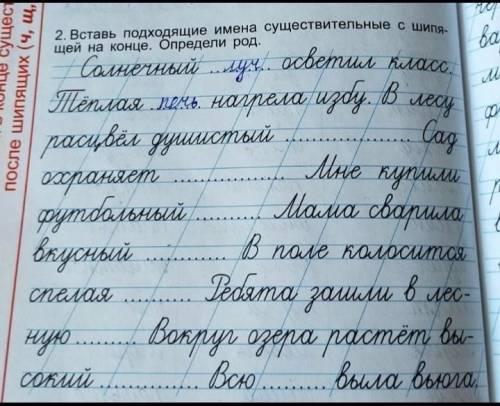 2. Вставь подходящие имена существительные с шипя-
щей на конце. Определи род.
Солнечный ..луч.. осветил класс.
Тёплая .печь. нагрела избу. В лесу
расцвёл душистый ................ Сад
охраняет ................. Мне купили
футбольный .......... Мама сварила
вкусный ............ В поле колосится
спелая .......... Ребята зашли в лес-
ную ......... Вокруг озера растёт вы-
сокий ............. Всю ......... выла вьюга.
после шипящих (ч, щ,